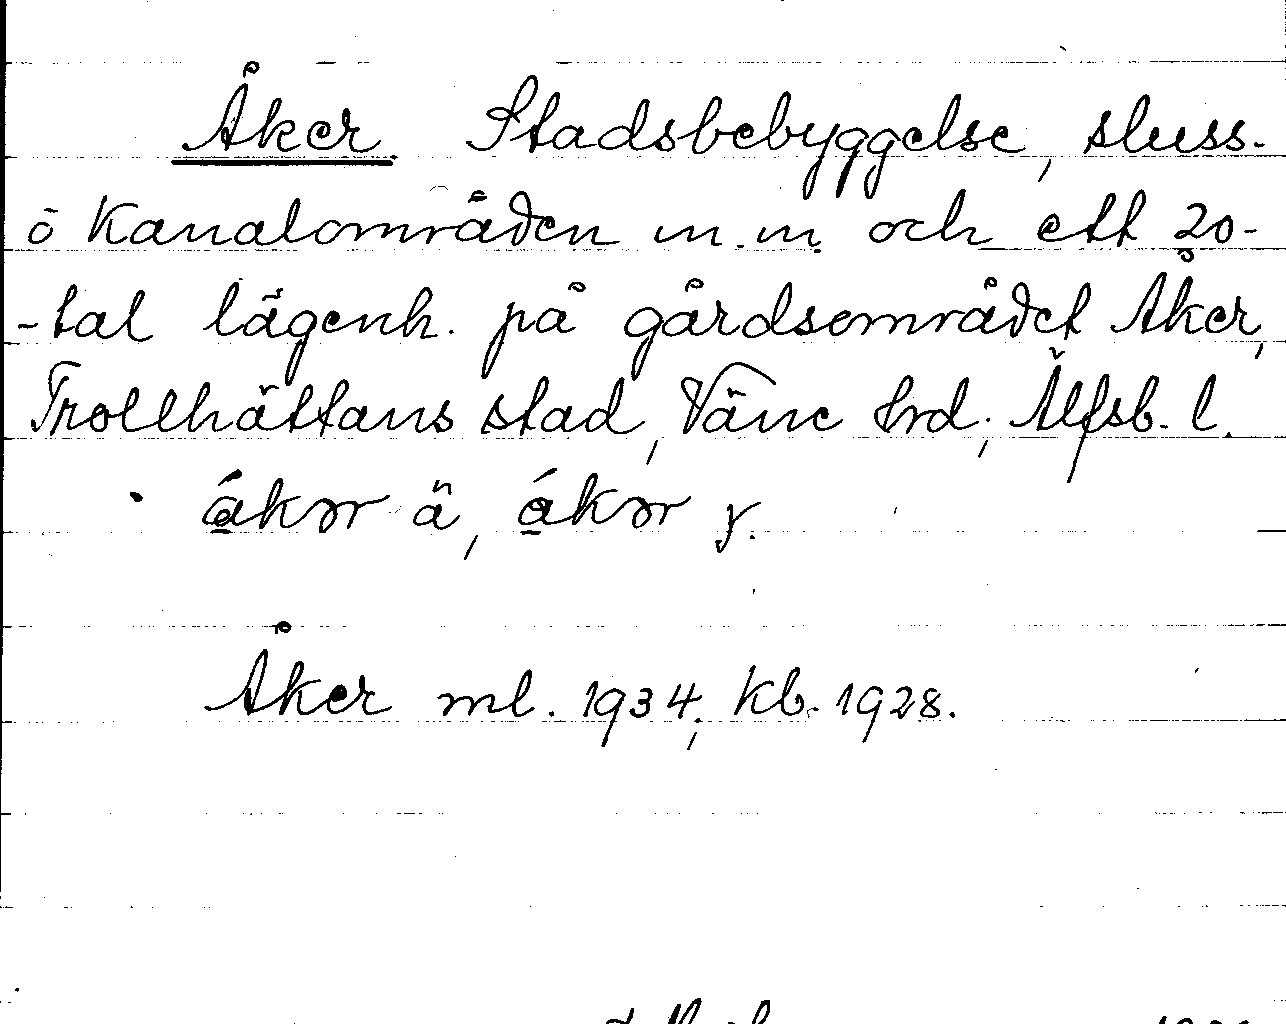 Åker. Stadsbebyggelse, sluss-
o kanalområden m.m. och ett 20-
-tal lägenh. på gårdsområdet Åker,
Trollhättans stad, Väne hrd, Älfsb. l.
åkər ä, åkər y.
Åker ml. 1934, kb. 1928.